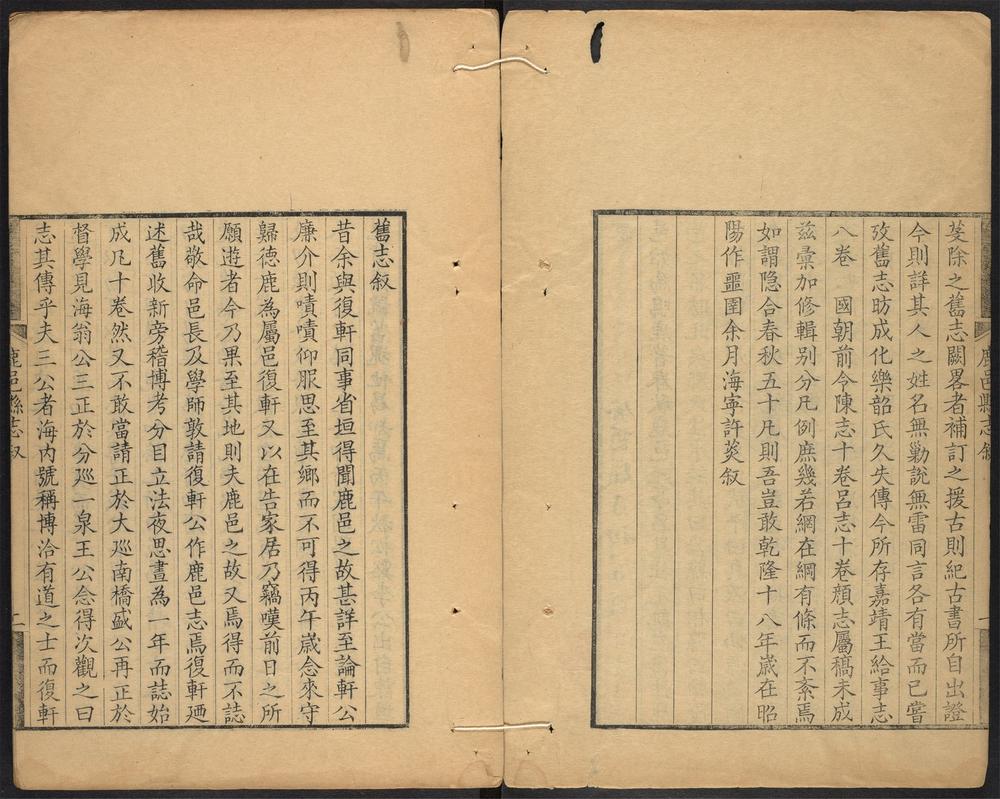 鹿邑縣志 叙
芟除之舊志闕畧者補訂之援古則紀古書所自出證
今則詳其人之姓名無勦說無雷同言各有當而已嘗
攷舊志昉成化樂韶氏久失傳今所存嘉靖王給事志
八卷 國朝前令陳志十卷呂志十卷顔志屬稿未成
兹彙加修輯别分凡例庶幾若網在綱有條而不紊焉
如謂隐合春秋五十凡則吾豈敢乾隆十八年歲在昭
陽作噩圉余月海寧許菼叙
舊志叙
昔余與復軒同事省垣得聞鹿邑之故甚詳至論軒公
廉介則嘖嘖仰服思至其鄉而不可得丙午歲念來守
歸德鹿為屬邑復軒又以在告家居乃竊嘆前日之所
願遊者今乃果至其地則夫鹿邑之故又焉得而不誌
哉敬命邑長及學師敦請復軒公作鹿邑志焉復軒廼
述舊收新旁稽博考分目立法夜思晝為一年而誌始
成凡十卷然又不敢當請正於大廵南橋盛公再正於
督學見海翁公三正於分廵一泉王公念得次觀之曰
志其傳乎夫三公者海内號稱博洽有道之士而復軒
鹿邑縣志 叙 二